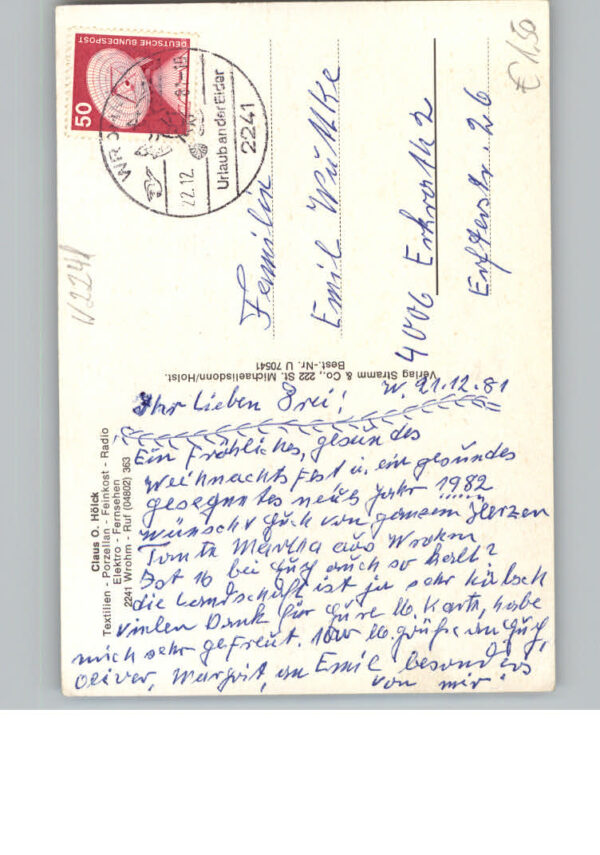 € 1,50
DEUTSCHE BUNDESPOST
50
WIR
22.12
Urlaub an der Eider
2241
W2241
Familie
Emil Wuttke
4006 Erkrath 2
Erftstr. 26
Verlag Stramm & Co., 222 St. Michaelisdonn/Holst.
Best.-Nr. U 70541
Claus O. Hölck
Textilien - Porzellan - Feinkost - Radio
Elektro - Fernsehen
2241 Wrohm - Ruf (04802) 363
W. 21.12.81
Ihr Lieben Drei!
Ein Fröhliches, gesundes
Weihnachtsfest u. ein gesundes
gesegnetes neues Jahr 1982
wünscht Euch von ganzem Herzen
Tante Martha aus Wrohm
Ist es bei Euch auch so kalt?
die Landschaft ist ja sehr hübsch
vielen Dank für Eure lb. Karte, habe
mich sehr gefreut. 1000 lb. Grüße an Euch,
Oliver, Margrit, an Emil besonders
von mir